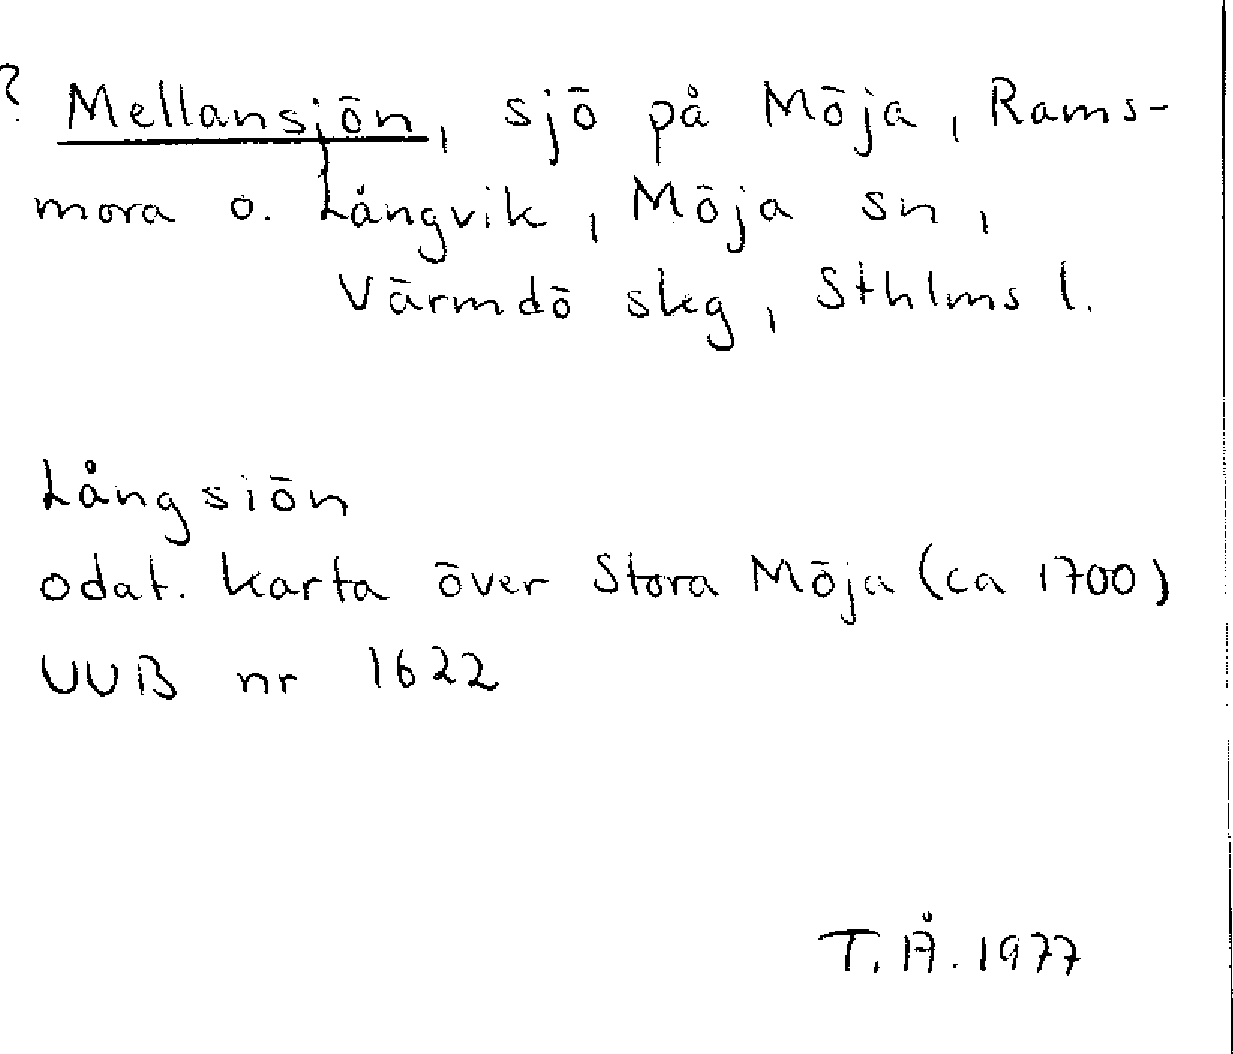 ? Mellansjön, sjö på Möja, Rams-
mora o. Långvik, Möja sn,
Värmdö skg, Sthlms l.
Långsiön
odat. karta över Stora Möja (ca 1700)
UUB nr 1622
T. Å. 1977